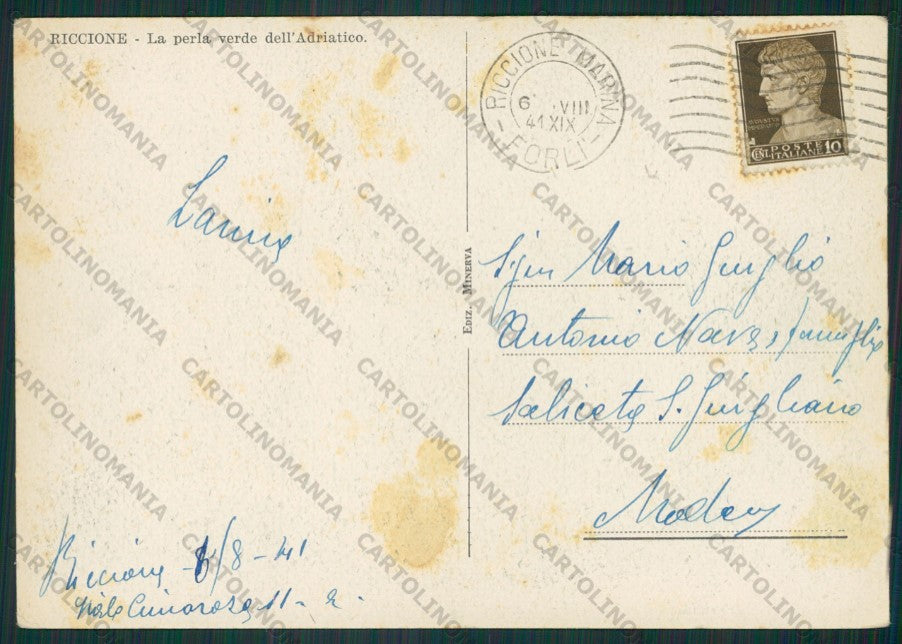 RICCIONE - La perla verde dell'Adriatico.
RICCIONE MARINA
6 VIII
41 XIX
FORLI'
CENT. POSTE ITALIANE 10
Lavinia
EDIZ. MINERVA
Mario
Antonio Nava e famiglia
Saliceta S. Giugliano
Modena
Riccione 6/8-41
Viale Cimarosa 11
CARTOLINOMANIA